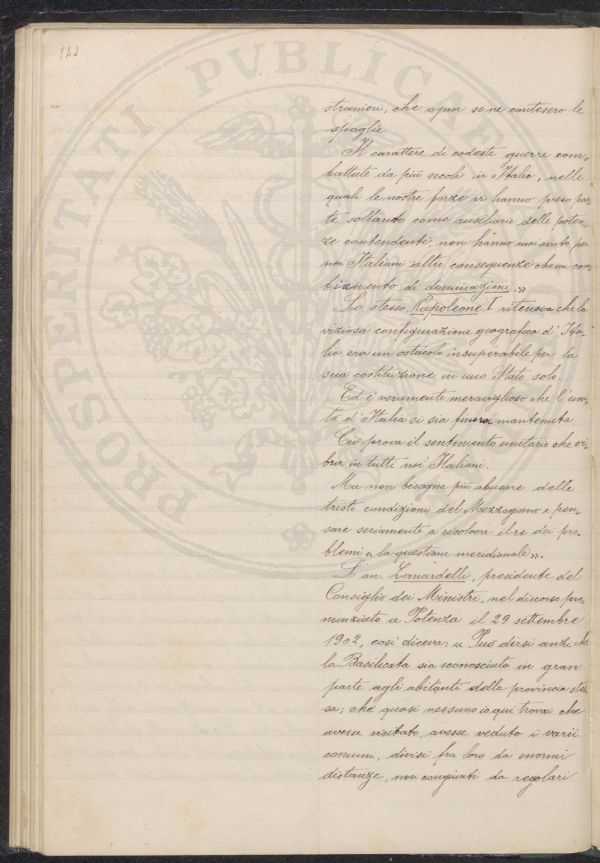 122
PROSPERITATI PVBLICAE
stranieri, che ognor se ne contesero le
spoglie.
Il carattere di codeste guerre com-
battute da più secoli in Italia, nelle
quali le nostre forze vi hanno preso par-
te soltanto come ausiliarie delle poten-
ze contendenti, non hanno mai avuto per
noi Italiani altre conseguenze che un cam-
biamento di dominazione.»
Lo stesso Napoleone I riteneva che la
viziosa configurazione geografica d'Ita-
lia era un ostacolo insuperabile per la
sua costituzione in uno Stato solo.
Ed è veramente meraviglioso che l'uni-
tà d'Italia si sia finora mantenuta.
Ciò prova il sentimento unitario che vi-
bra in tutti noi Italiani.
Ma non bisogna più abusare delle
tristi condizioni del Mezzogiorno e pen-
sare seriamente a risolvere il re dei pro-
blemi « la questione meridionale».
L'on. Zanardelli, presidente del
Consiglio dei Ministri, nel discorso pro-
nunziato a Potenza il 29 settembre
1902, così diceva: « Può dirsi anzi che
la Basilicata sia sconosciuta in gran
parte agli abitanti della provincia stes-
sa; chè quasi nessuno io qui trovai che
avesse visitato, avesse veduto i varii
comuni, divisi fra loro da enormi
distanze, non congiunti da regolari